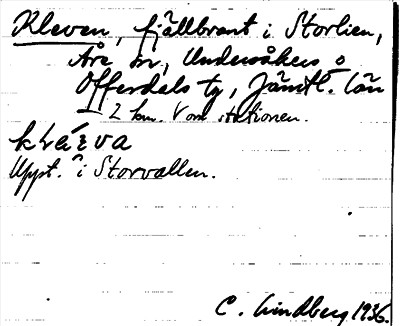 Kleven, fjällbrant i Storlien,
Åre sn, Undersåkers o
Offerdals tg, Jämtl. län
2 km. V om stationen.
Uppt. i Storvallen.
C. Lindberg 1936.